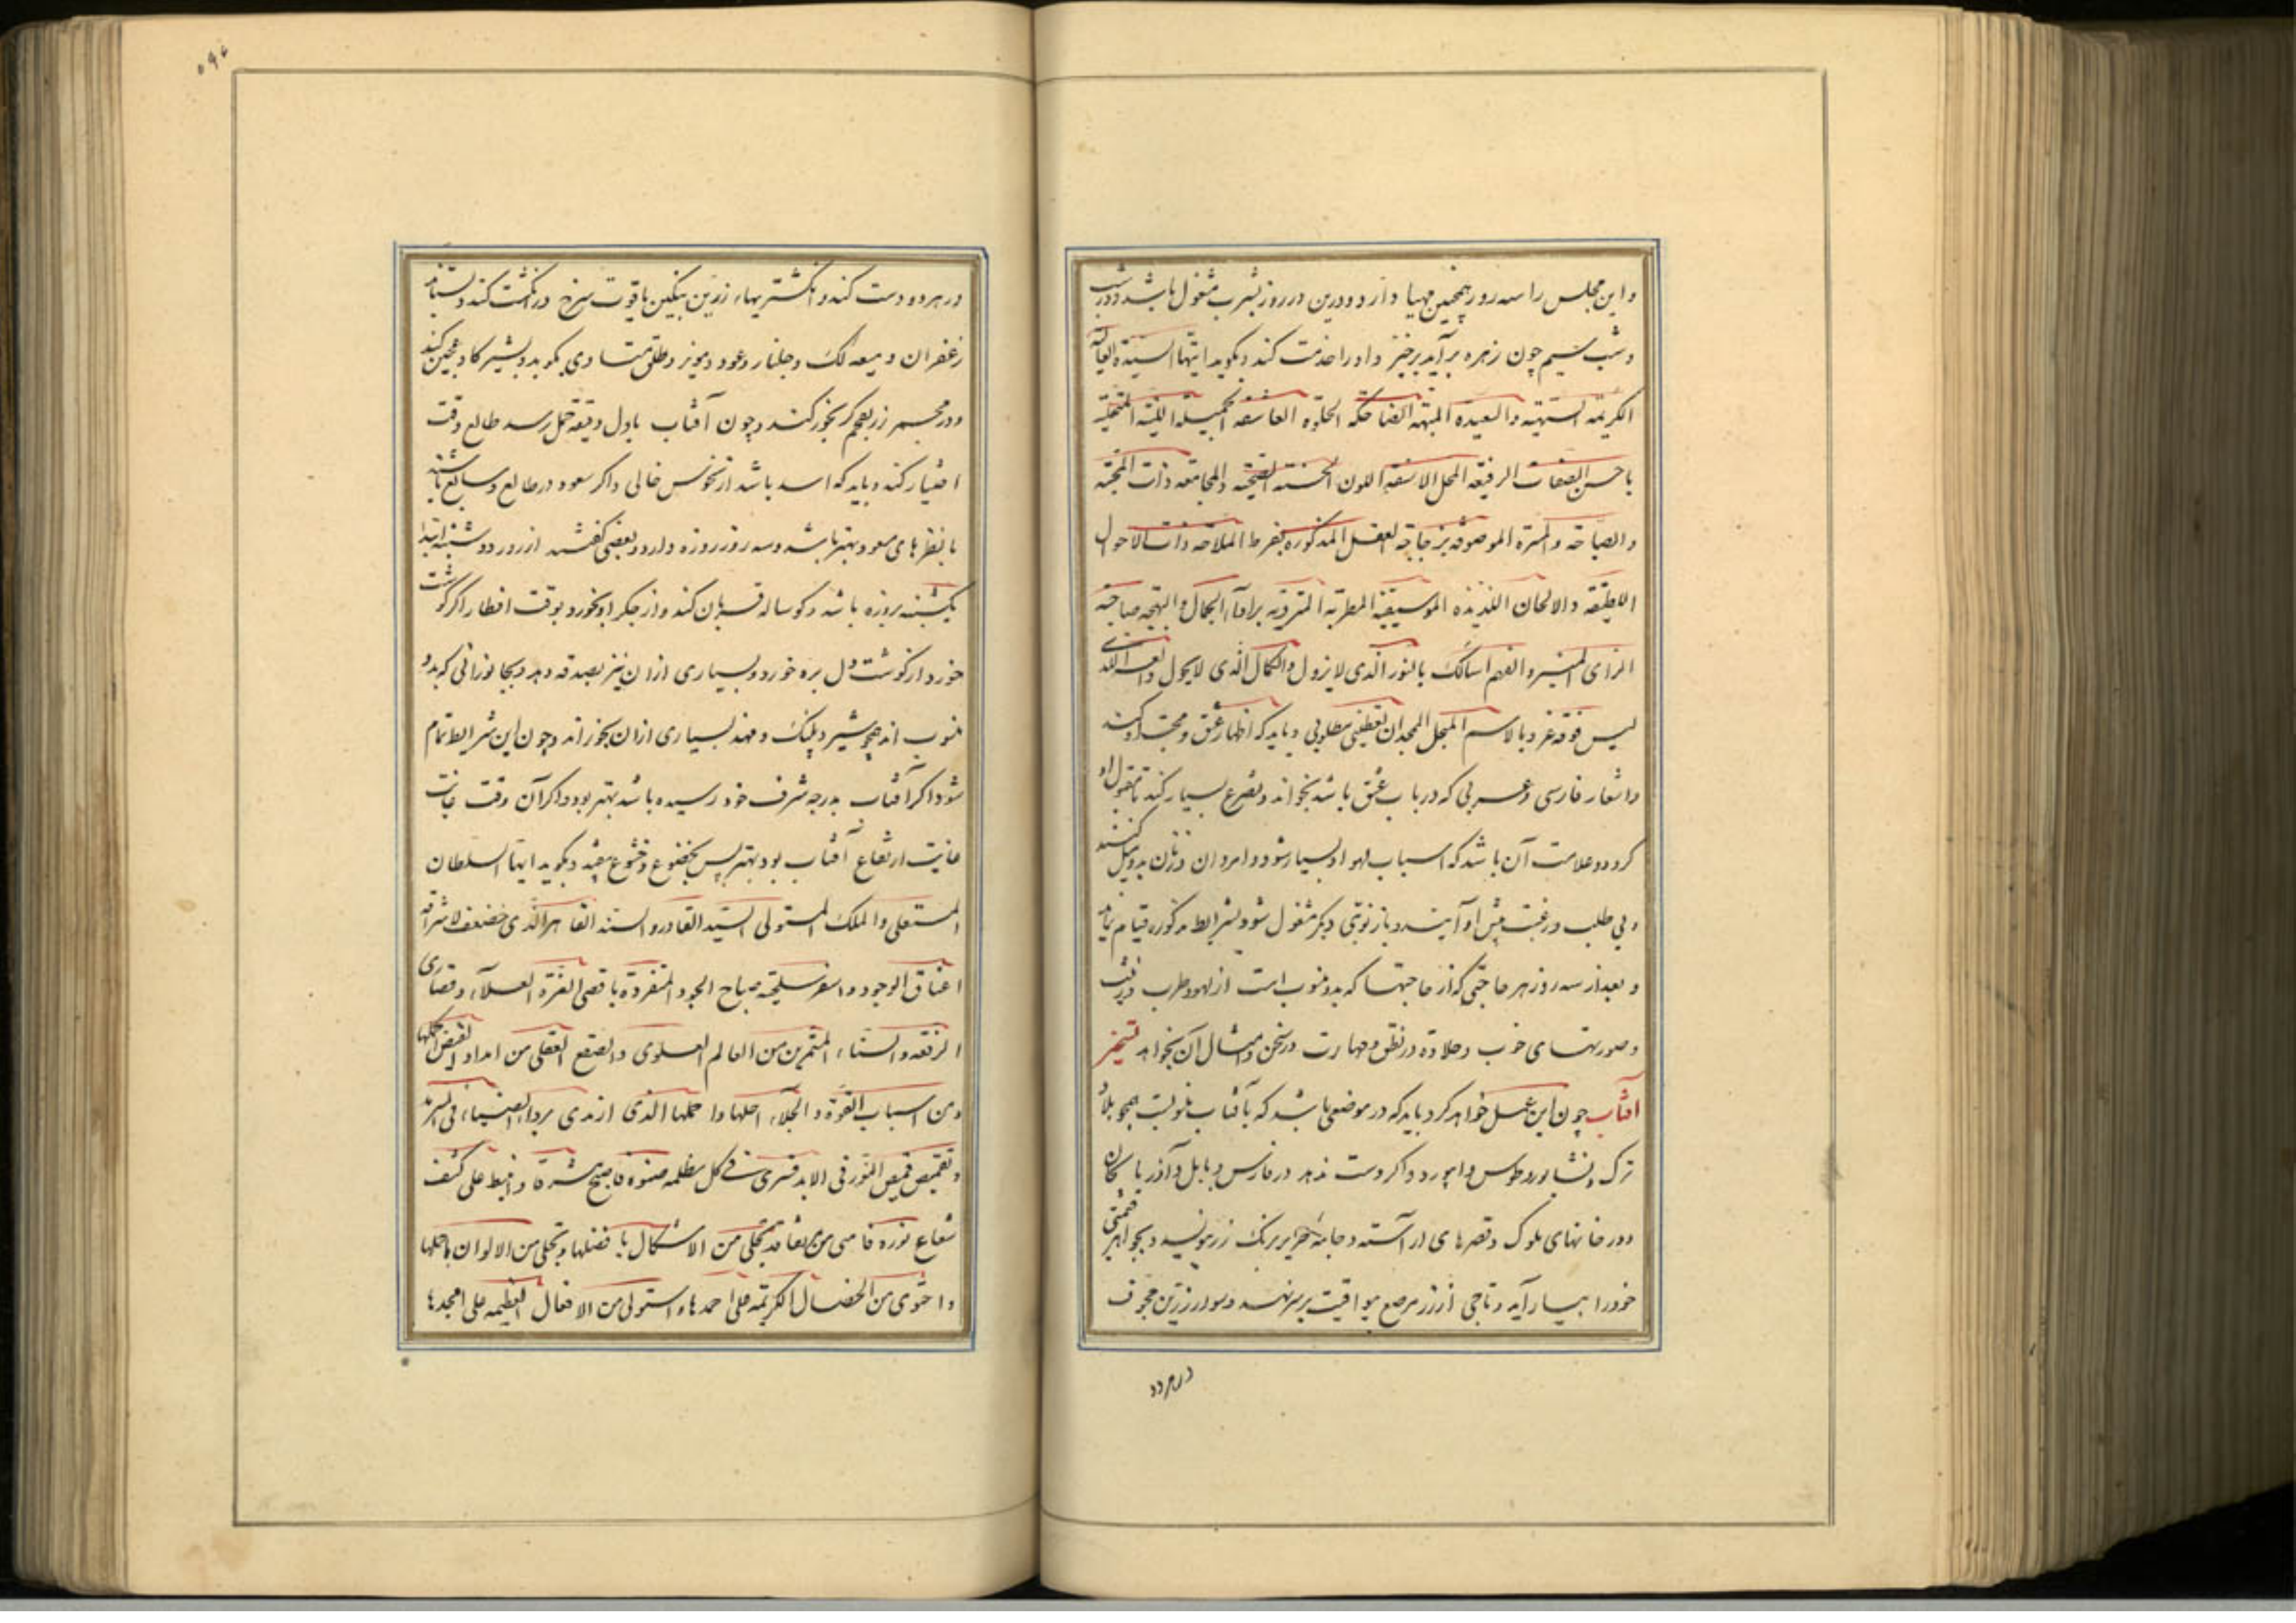 و این مجلس را سه روز همچنین مهیا دارد و درین در روز بشرب مشغول باشد و در شب
و شب سیم چون زهره برآید برخیزد و او را خدمت کند و بگوید ایتها السیدة العالیة
الکریمة السنیة والسعیدة البهیة الضاحکة الحلوة العاشقة الجمیلة اللینة المتحلیة
باحسن الصفات الرفیعة المحل اللون الحسنة والمجامعة ذات المحبة
والصباحة والمسرة الموصوفة برجاحة العقل المذکورة بفرط الملاحة ذات الاحوال
اللطیفة والالحان اللذیذة الموسیقیة المطربة المتردیة برداء الجمال والبهجة صاحبة
الرای المنیر والفهم اسالک بالنور الذی لا یزول والکمال الذی لا یحول
لیس فوقه عز و بالاسم المبجل الممجد ان تعطینی مطلوبی و باید که اظهار عشق و محبت او کند
و اشعار فارسی و عربی که در باب عشق باشد بخواند و تضرع بسیار کند تا مقبول او
گردد و علامت آن باشد که اسباب لهو او بسیار شود و امردان و زنان بدو میل کنند
و بی طلب و رغبت پیش او آیند و باز نوبتی دیگر مشغول شود و بشرایط مذکوره قیام نماید
و بعد از سه روز هر حاجتی که از حاجتها که بدو منسوب است از لهو و طرب و زینت
و صورتهای خوب و حلاوة در نطق و مهارت در سخن و امثال آن بخواهد تسخیر
آفتاب چون این عمل خواهد کرد باید که در موضعی باشد که بآفتاب منسوبست همچو بلاد
ترک و نشابور و طوس و ابیورد و اگر دست ندهد در فارس و بابل و آذربایجان
و در خانهای ملوک و قصرهای آراسته و جامهٔ حریر برنگ زر پوشد و بجواهر قیمتی
خود را بیاراید و تاجی از زر مرصع بیواقیت بر سر نهد و سوار زرین مجوف
در هر دو
۵۹۶
در هر دو دست کند و انگشتریهاء زرین بنگین یاقوت سرخ در انگشت کند و بستاند
زعفران و میعه لک و جلنار و عود و مویز و طلق متساوی بکوبد و بشیر گاو عجین کند
و در مجمر زر بعجم بخور کند و چون آفتاب باول دقیقهٔ حمل رسد طالع وقت
اختیار کند و باید که اسد باشد از نحوس خالی و اگر سعود در طالع و سابع باشند
یا نظرهای سعود بهتر باشد و سه روز روزه دارد و بعضی گفتند از روز دوشنبه ابتدا
یکشنبه بروزه باشد و گوساله قربان کند و از جگر او بخورد بوقت افطار اگر گوشت
خورد از گوشت دل بره خورد و بسیاری ازان نیز بصدقه دهد و بجانورانی که بدو
منسوب اند همچو شیر و پلنگ و فهد بسیاری ازان بخوراند و چون این شرایط تمام
شود اگر آفتاب بدرجه شرف خود رسیده باشد بهتر بود و اگر آن وقت غایت
غایت ارتفاع آفتاب بود بهتر پس بخضوع و خشوع بیفتد و بگوید ایها السلطان
المستعلی والملک المستولی السید القادر والسند القاهر الذی خضعت لاشراقه
اعناق الوجود و صباح الجود المتفردة باقصی الغزة العلاء و قصاری
الرفعة والسناء من العالم العلوی والصقع العقلی من امداد الفیض اکملها
ومن اسباب القوة والجلاء اجلها و اجملها الذی ارتدی برداء الضیاء فی السرمد
و تقمص قمیص النور فی الابد فسری فی کل مظلمة ضوءه فاصبح و انبسط علی کشف
شعاع نوره من الاشکال بافضلها و تحلی من الالوان باجملها
و احتوی من الخصال الکریمة علی احمدها و استولی من الافعال العظیمة علی امجدها